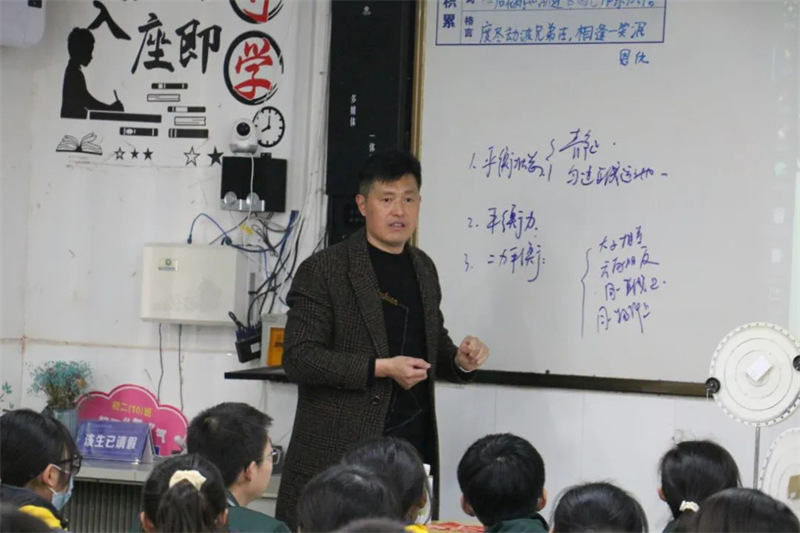 入座即
学
积累
格言
度尽劫波兄弟在,相逢一笑泯
恩仇
多媒体一体
1. 平衡状态
静止
匀速直线运动
2. 平衡力
3. 二力平衡:
大小相等
方向相反
同一直线上
同一物体上
初二(10)班
该生已请假